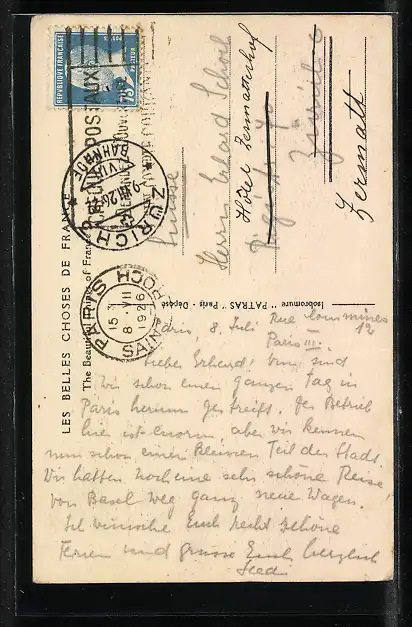 REPUBLIQUE FRANÇAISE
POSTES
PASTEUR
75c
ZÜRICH
BAHNHOF
9.VII.26
PARIS
SAINT ROCH
15
8 VII
1926
LES BELLES CHOSES DE FRANCE
The Beautiful Things of France
Isobromure "PATRAS" Paris - Déposé
Herrn Erhard Schoel
Hotel Zermatterhof
Zürich 6
Zermatt
Suisse
Rue Commines
12
Paris III.
Paris, 8. Juli
Lieber Erhard! Nun sind
wir schon einen ganzen Tag in
Paris herum gestreift. Der Betrieb
hier ist enorm, aber wir kennen
nun schon einen kleinen Teil der Stadt.
Wir hatten noch eine sehr schöne Reise
von Basel weg ganz neue Wagen.
Ich wünsche Euch recht schöne
Ferien und grüsse Euch herzlich
Hedi